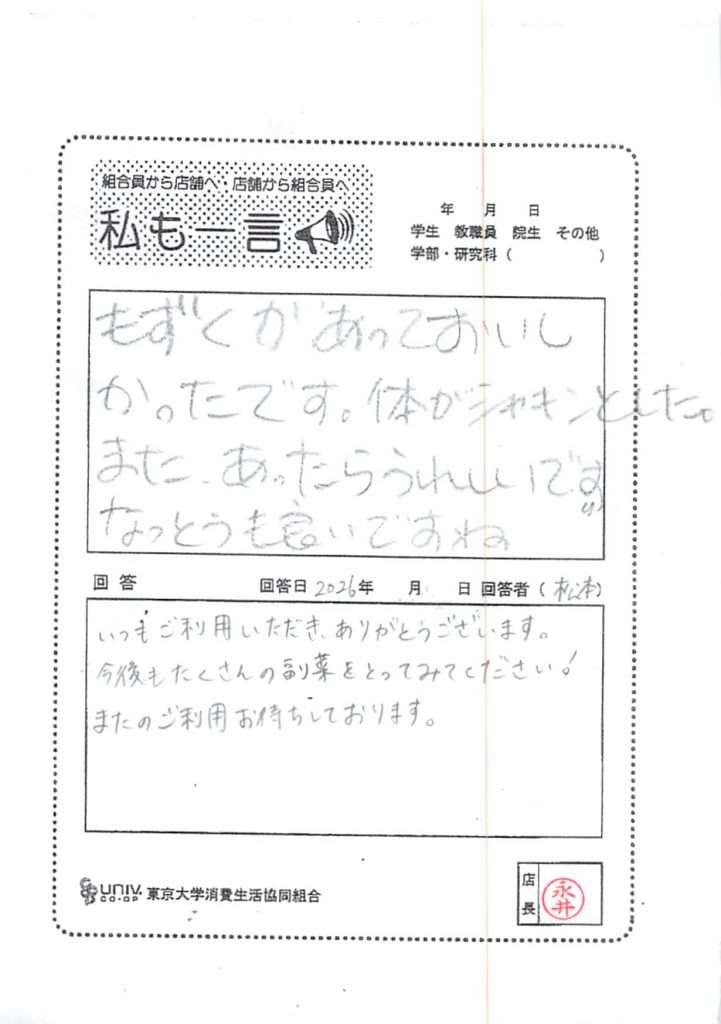 組合員から店舗へ・店舗から組合員へ
私も一言
年 月 日
学生 教職員 院生 その他
学部・研究科 ( )
もずくがあっておいし
かったです。体がシャキンとした。
また、あったらうれしいです
なっとうも良いですね
回答 回答日 2026年 月 日 回答者 (松本)
いつもご利用いただき、ありがとうございます。
今後もたくさんの副菜をとってみてください!
またのご利用お待ちしております。
UNIV. CO-OP 東京大学消費生活協同組合
店長 永井